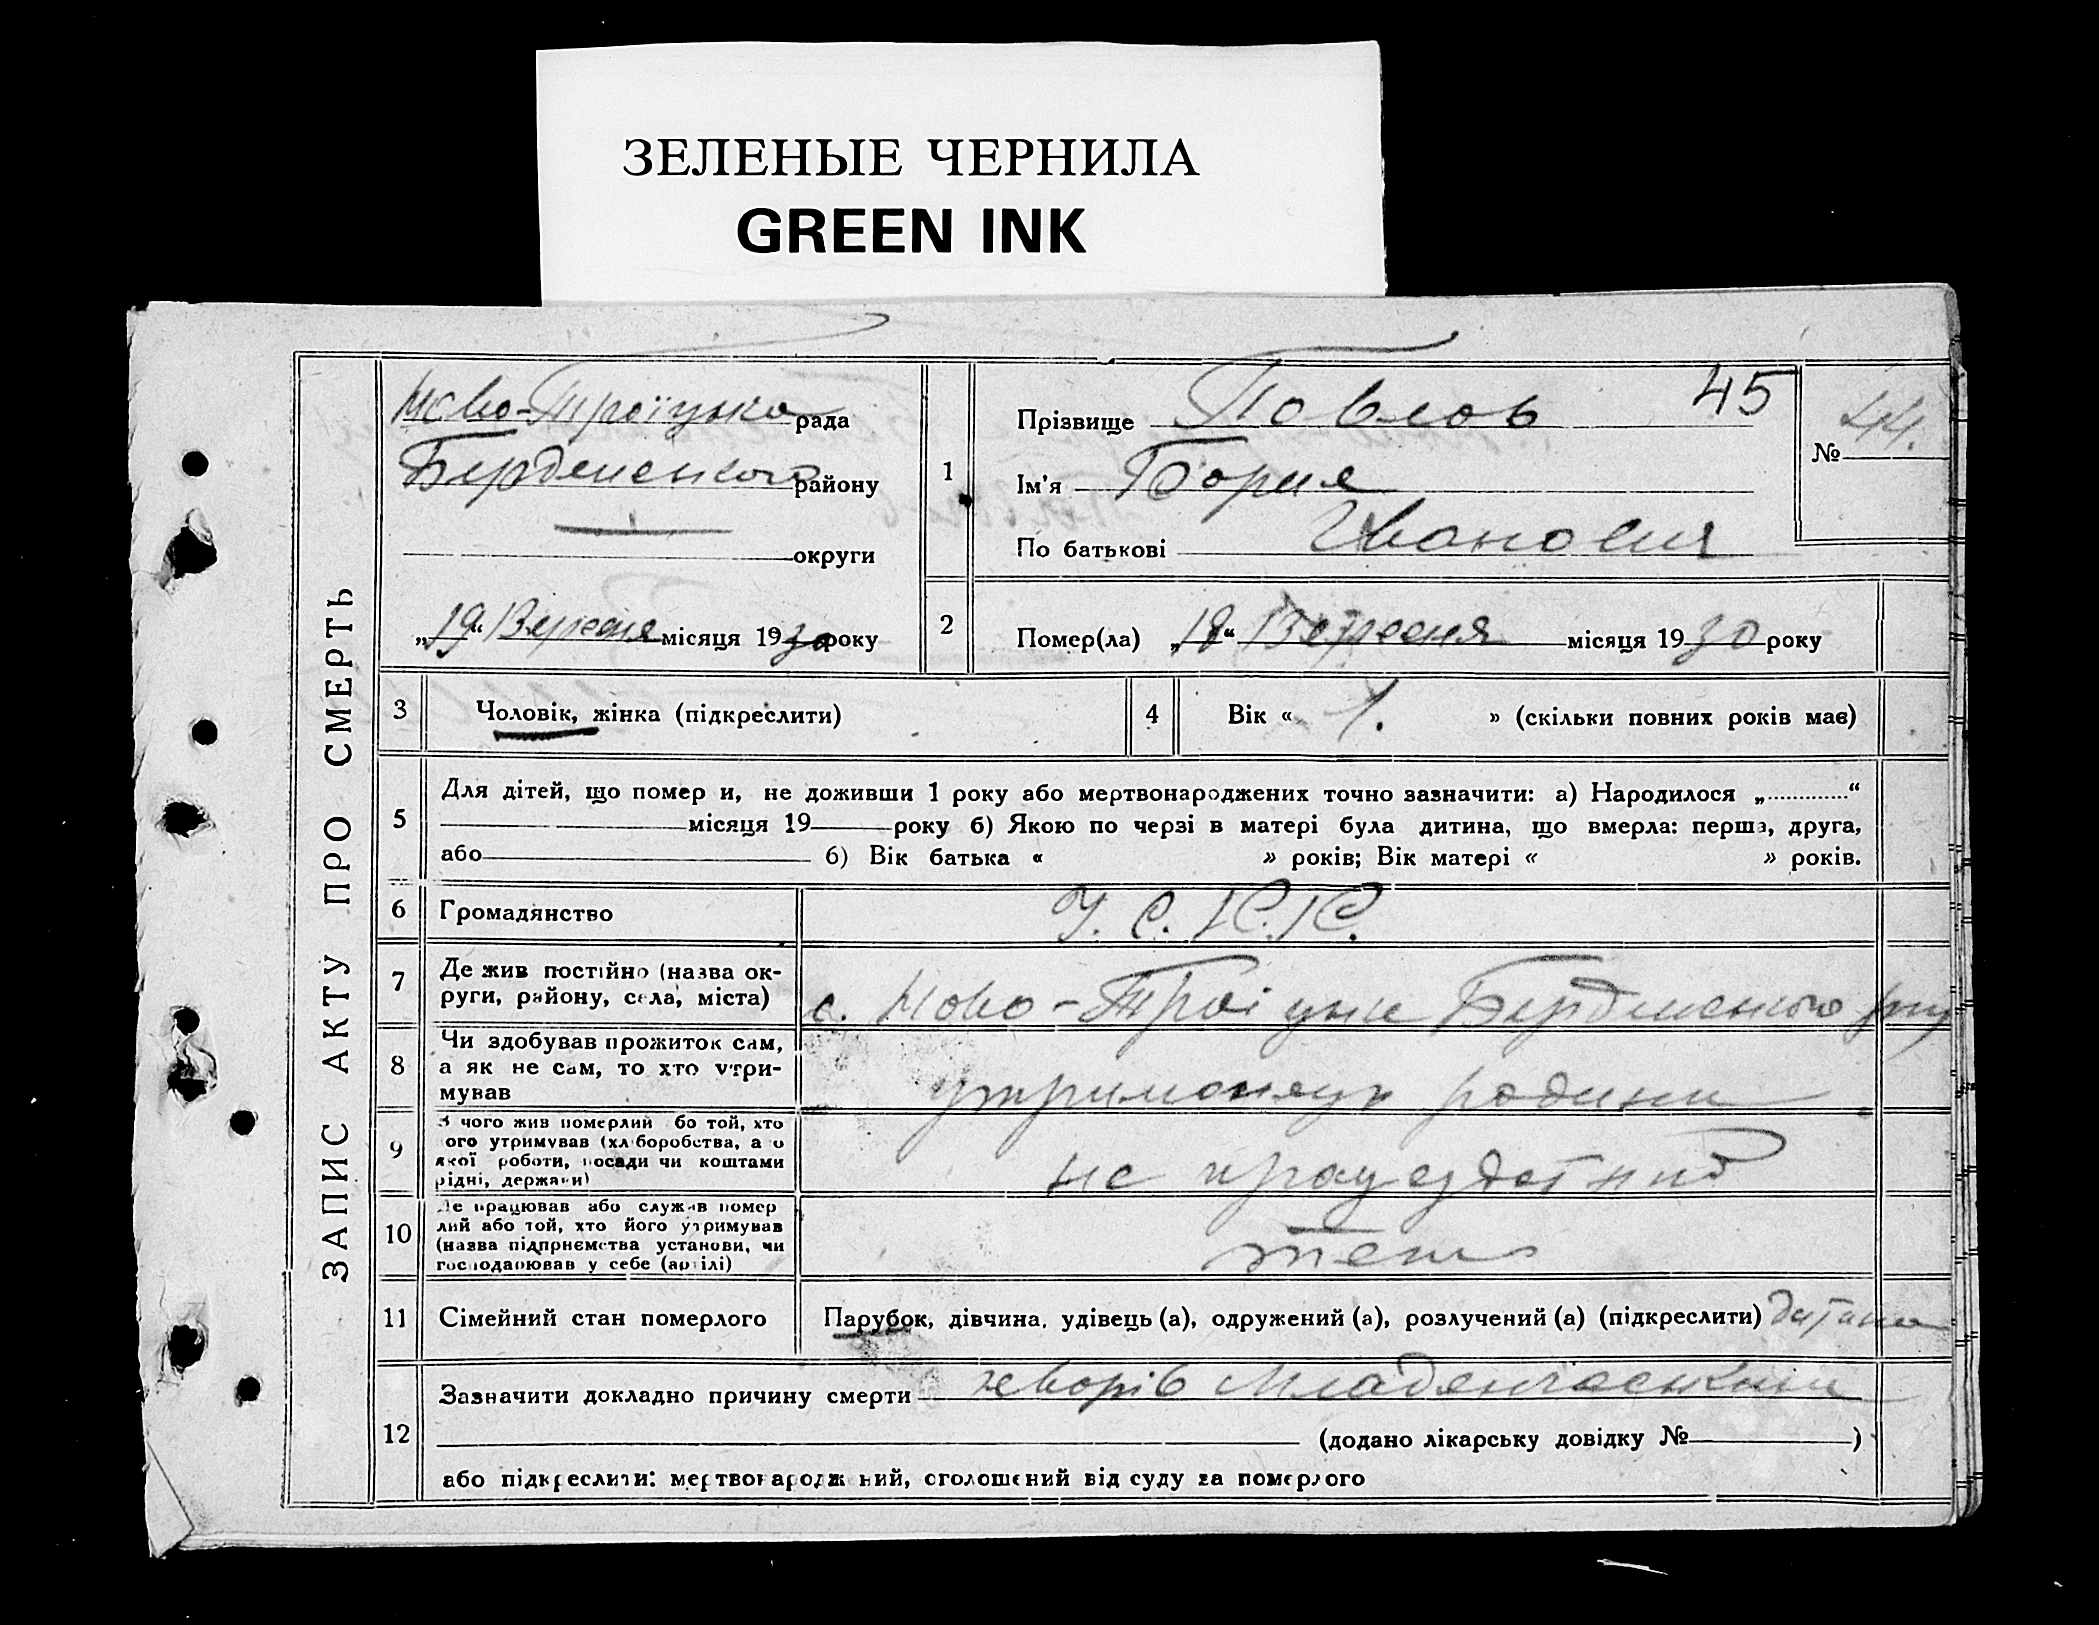 ЗЕЛЕНЫЕ ЧЕРНИЛА
GREEN INK
ЗАПИС АКТУ ПРО СМЕРТЬ
Ново-Троїцька рада
Бердянського району
округи
„19“ Вересня місяця 1930 року
1
Прізвище Павлов 45
№ 44.
Ім'я Борис
По батькові Іванович
2
Помер(ла) „18“ Вересня місяця 1930 року
3
Чоловік, жінка (підкреслити)
4
Вік « 1. » (скільки повних років має)
5
Для дітей, що помер и, не доживши 1 року або мертвонароджених точно зазначити: а) Народилося „ “
місяця 19 року б) Якою по черзі в матері була дитина, що вмерла: перша, друга,
або б) Вік батька « » років; Вік матері « » років.
6
Громадянство
У. С. Р. Р.
7
Де жив постійно (назва ок-
руги, району, села, міста)
с. Ново-Троїцьке Бердянського р-ну
8
Чи здобував прожиток сам,
а як не сам, то хто утри-
мував
утриманець родини
9
З чого жив померлий бо той, хто
ого утримував (хліборобства, а о
якої роботи, посади чи коштами
рідні, держави)
не працездатний
10
Де працював або служив помер
лий або той, хто його утримував
(назва підприємства установи, чи
господарював у себе (артілі)
теж
11
Сімейний стан померлого
Парубок, дівчина, удівець (а), одружений (а), розлучений (а) (підкреслити) дитина
12
Зазначити докладно причину смерти хворів младенческим
(додано лікарську довідку № )
або підкреслити: мертвонароджений, оголошений від суду за померлого